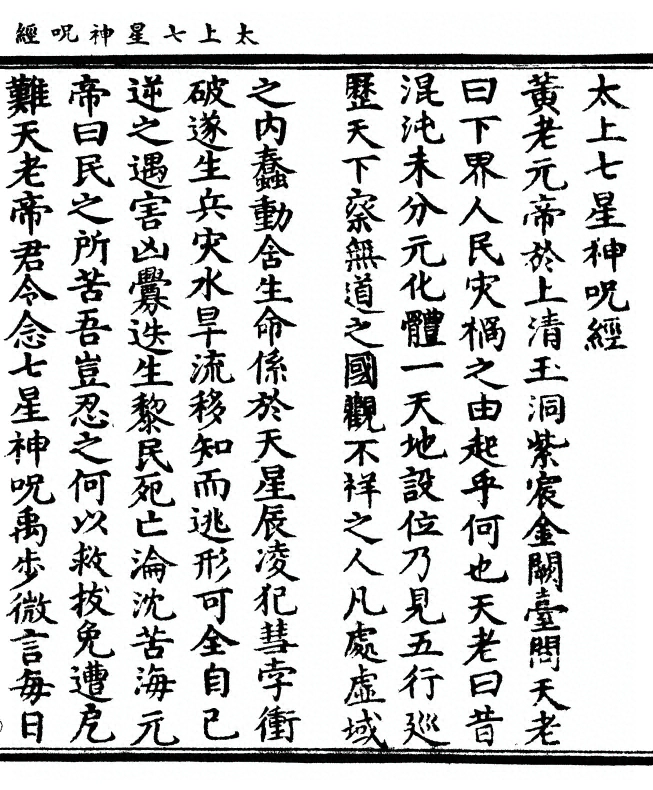 太上七星神呪經
太上七星神呪經
黃老元帝於上清玉洞紫宸金闕臺問天老
曰下界人民灾禍之由起乎何也天老曰昔
混沌未分元化體一天地設位乃見五行巡
歷天下察無道之國觀不祥之人凡處虛域
之內蠢動含生命係於天星辰凌犯彗孛衝
破遂生兵灾水旱流移知而逃形可全自己
逆之遇害凶釁迭生黎民死亡淪沈苦海元
帝曰民之所苦吾豈忍之何以救拔免遭危
難天老帝君令念七星神呪禹步微言每日